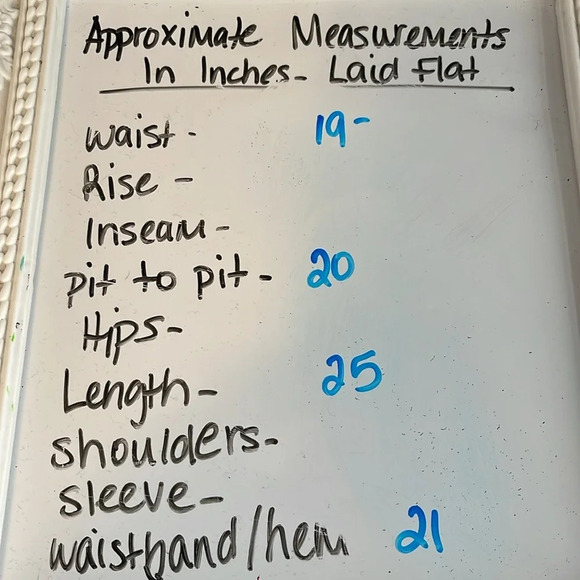 Approximate Measurements
In Inches- Laid Flat
waist - 19-
Rise -
Inseam -
pit to pit - 20
Hips-
Length- 25
shoulders-
sleeve-
waistband/hem 21